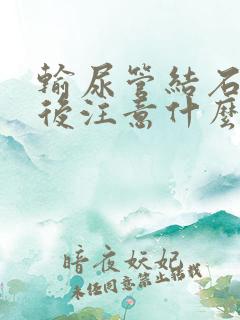 輸尿管結石
後注意什麼
暗夜妖妃
未經同意禁止轉載